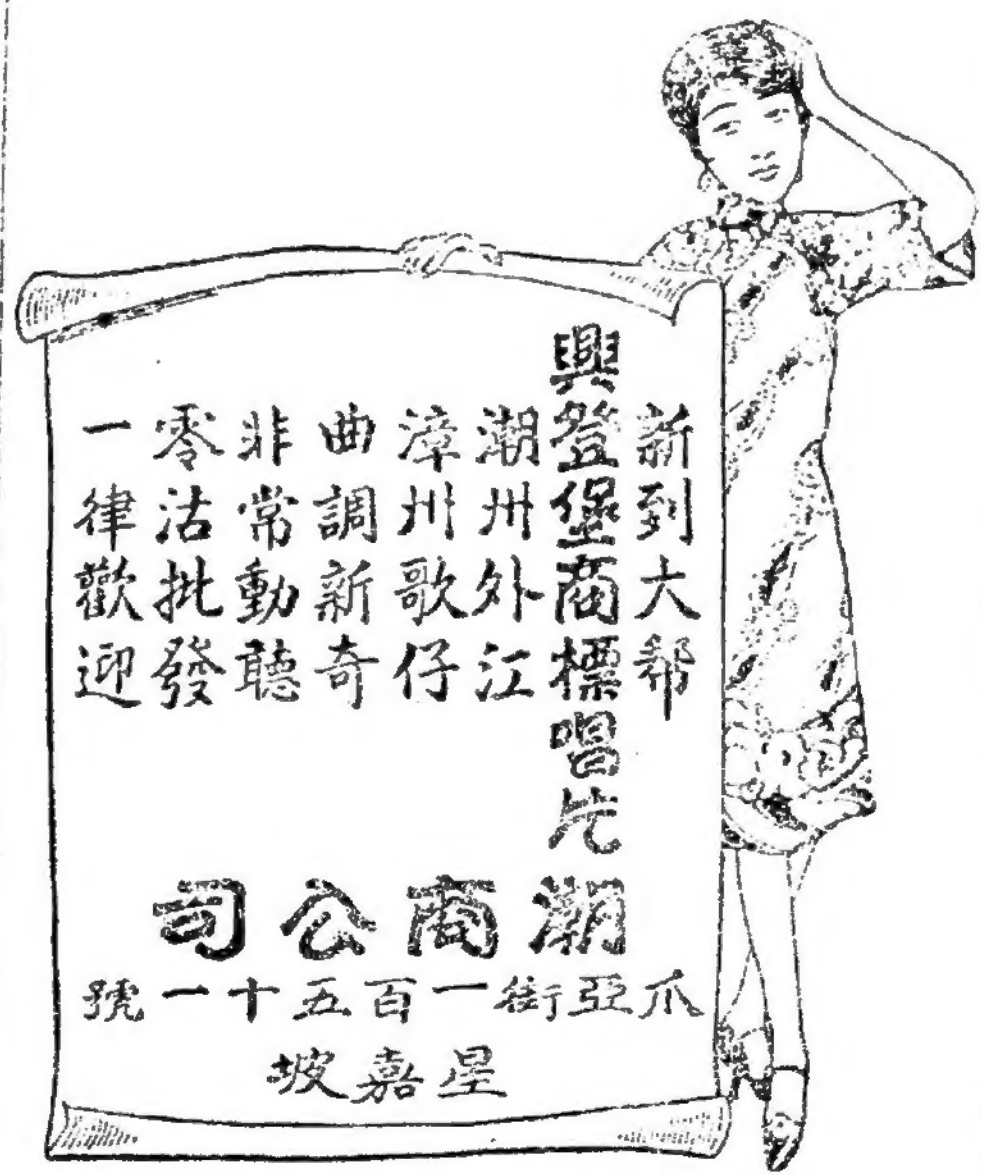 新到大幫
興登堡商標唱片
潮州外江
漳州歌仔
曲調新奇
非常動聽
零沽批發
一律歡迎
潮商公司
爪亞街一百五十一號
星嘉坡